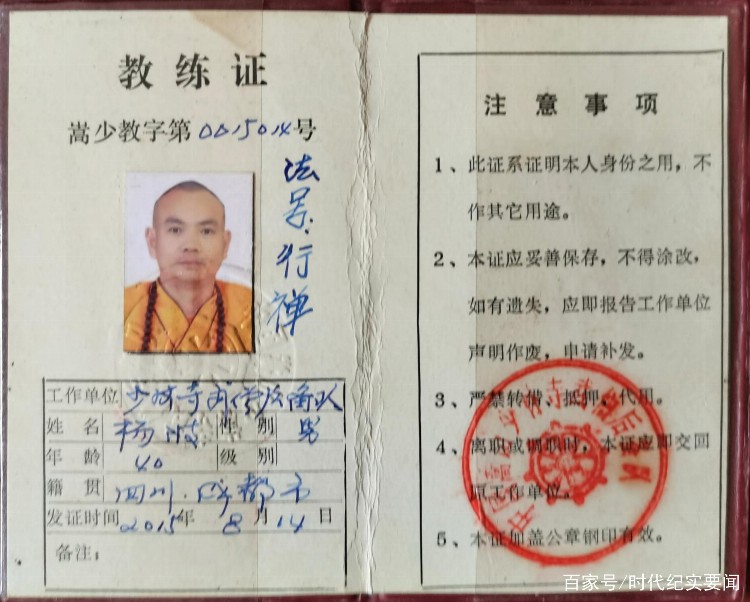 教练证
嵩少教字第0015014号
法号:行禅
工作单位 少林寺武僧后备队
姓名 杨波 性别 男
年龄 40 级别
籍贯 四川·成都市
发证时间 2015年8月14日
备注:
注意事项
1、此证系证明本人身份之用,不
作其它用途。
2、本证应妥善保存,不得涂改,
如有遗失,应即报告工作单位
声明作废,申请补发。
3、严禁转借、抵押、代用。
4、离职或调职时,本证应即交回
原工作单位。
5、本证加盖公章钢印有效。
百家号/时代纪实要闻